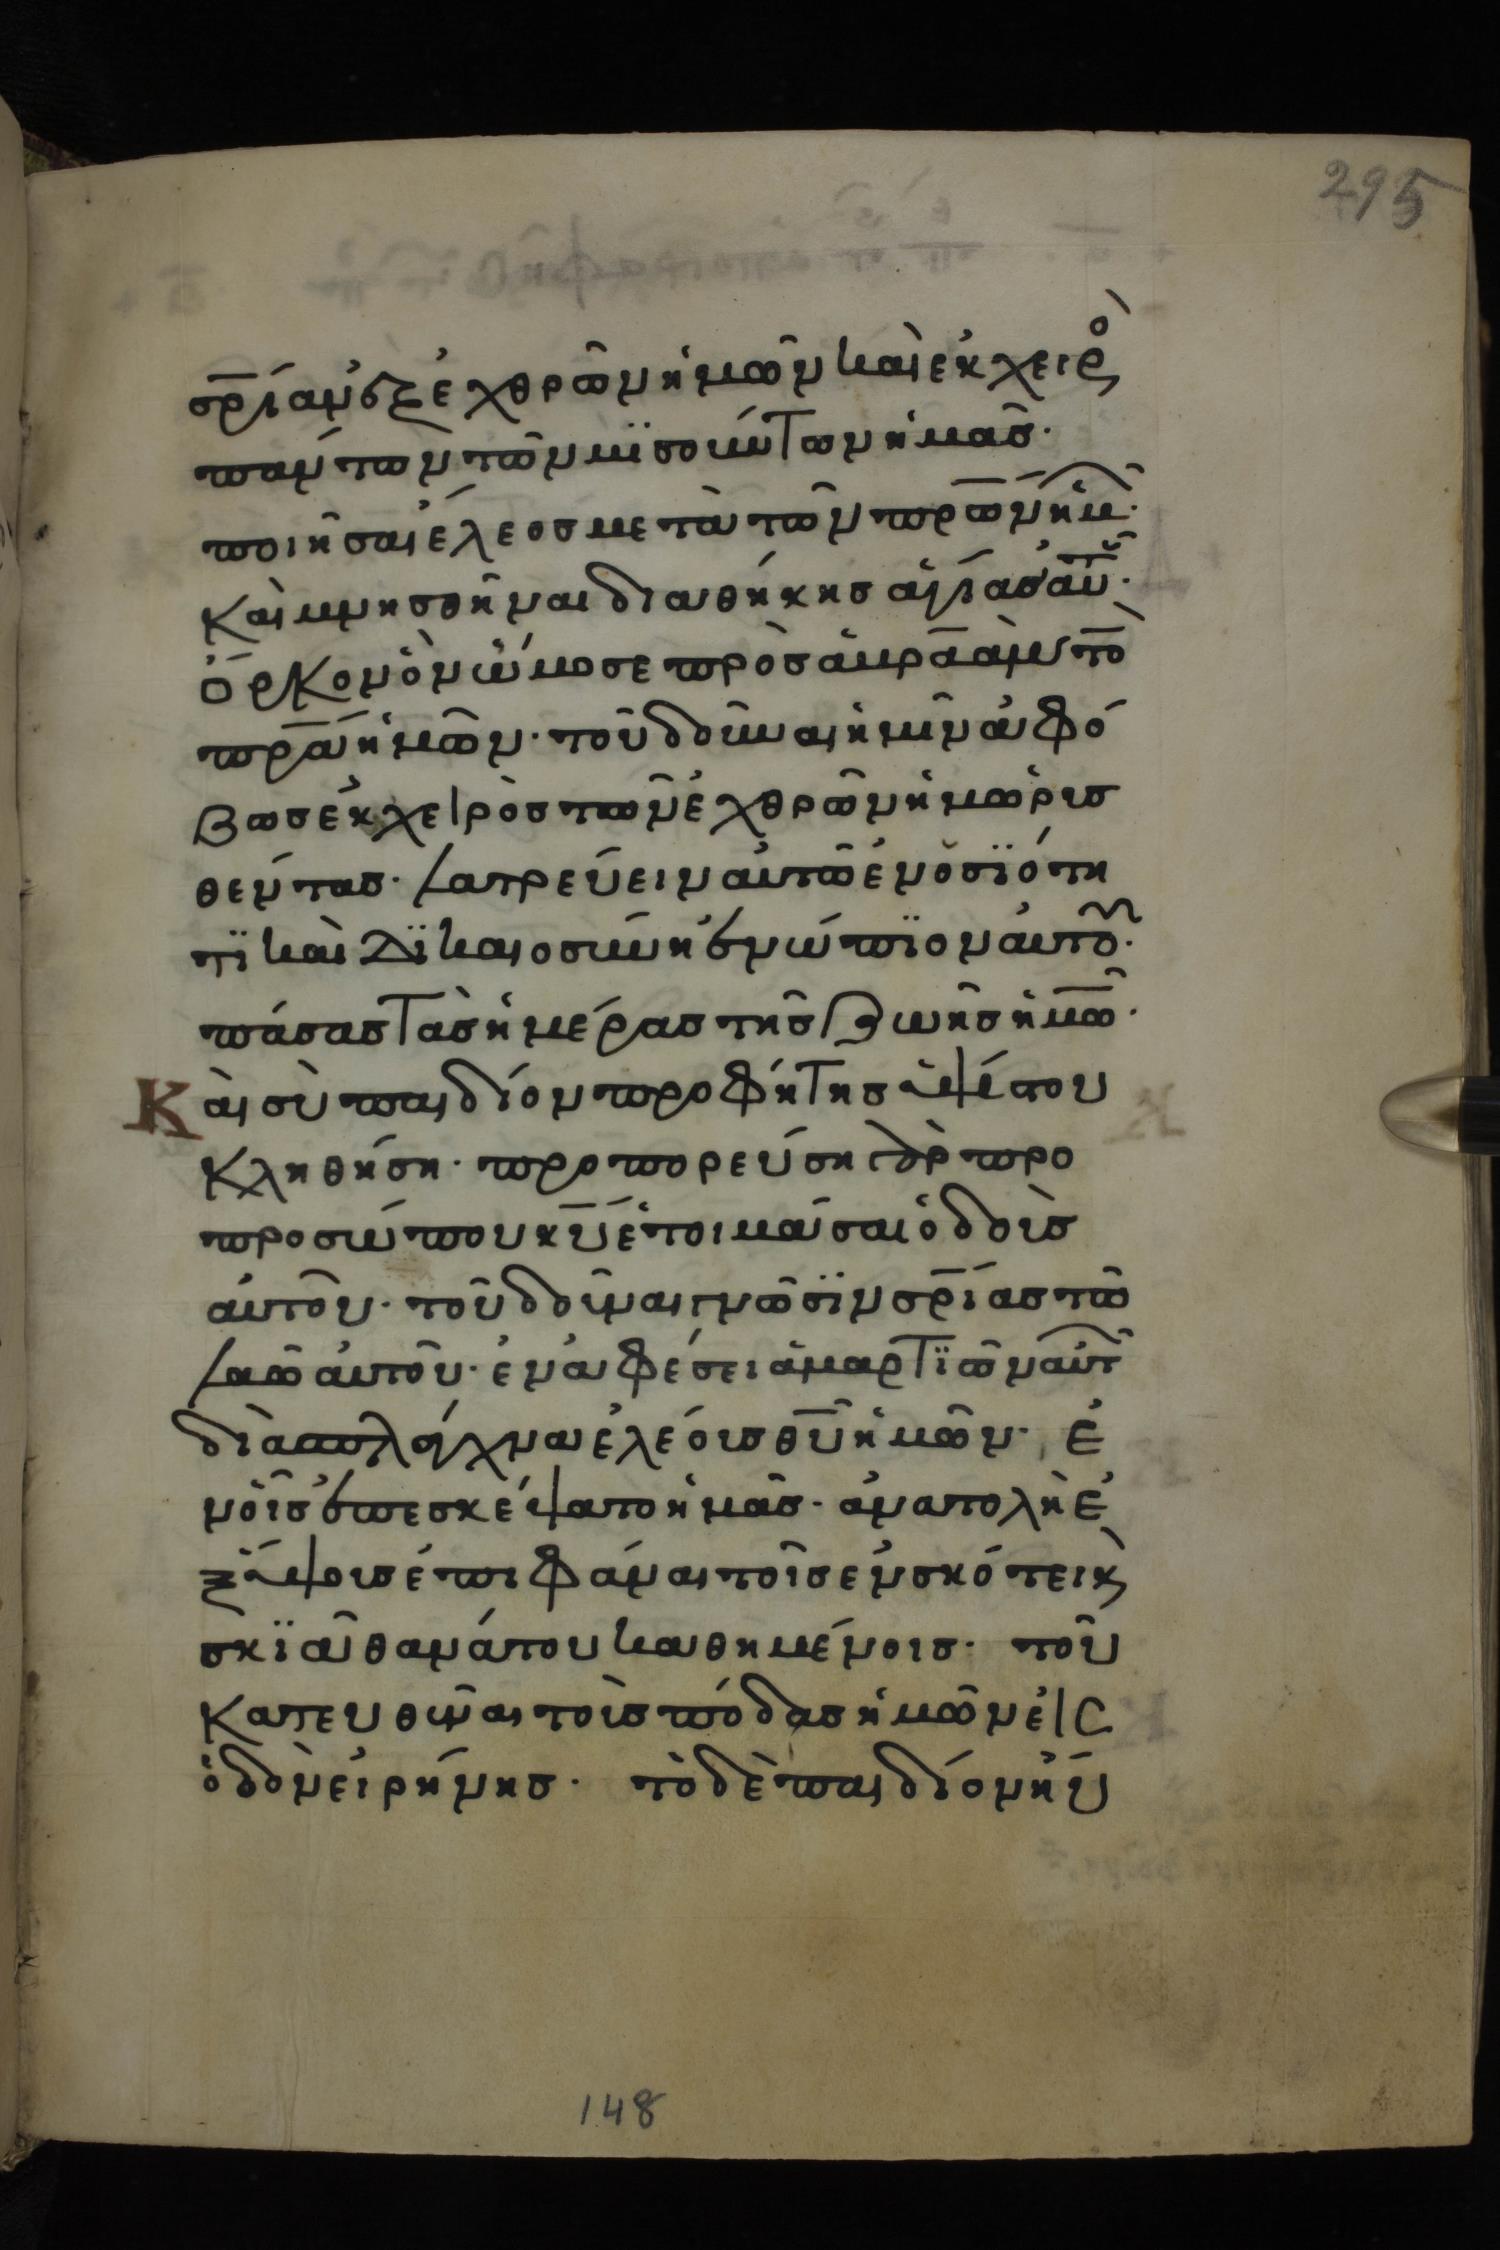 295
σρίαν ἐξ ἐχθρῶν ἡμῶν καὶ ἐκ χειρὸ
πάντων τῶν μϊσούντων ἡμᾶσ·
ποιῆσαι ἔλεοσ μετὰ τῶν πρων ἡμ·
Καὶ μνησθῆναι διαθήκησ ἁγίασ αὐτ·
Ὅρκον ὃν ὤμοσε πρὸσ ἀβραὰμ τὸ
πρα ἡμῶν· τοῦ δοῦναι ἡμῖν ἀφό
βωσ ἐκ χειρὸσ τῶν ἐχθρῶν ἡμῶ ρυσ
θέντασ· λατρεύειν αὐτῶ ἐν ὁσϊότη
τϊ καὶ Δϊκαιοσύνη ἐνώπϊον αὐτοῦ·
πάσασ τὰσ ἡμέρασ τῆσ ζωῆσ ἡμῶ·
Καὶ σὺ παιδίον προφήτησ ὑψίστου
Κληθήση· προπορεύση γὰρ προ
προσώπου κυ ἑτοιμάσαι ὁδοὺσ
αὐτοῦ· τοῦ δοῦναι γνῶσϊν σρίασ τῶ
λαῶ αὐτοῦ· ἐν ἀφέσει ἁμαρτϊῶν αὐτ
διὰ σπλάγχνα ἐλέουσ θυ ἡμῶν· Ἐ
ν οἷσ ἐπεσκέψατο ἡμᾶσ· ἀνατολὴ Ἐ
ξ ὕψουσ ἐπιφάναι τοῖσ ἐν σκότει κ
σκϊᾶ θανάτου καθημένοισ· τοῦ
Κατευθῦναι τοὺσ πόδασ ἡμῶν εἰσ
ὁδὸν εἰρήνησ· τὸ δὲ παιδίον ηὔ
148